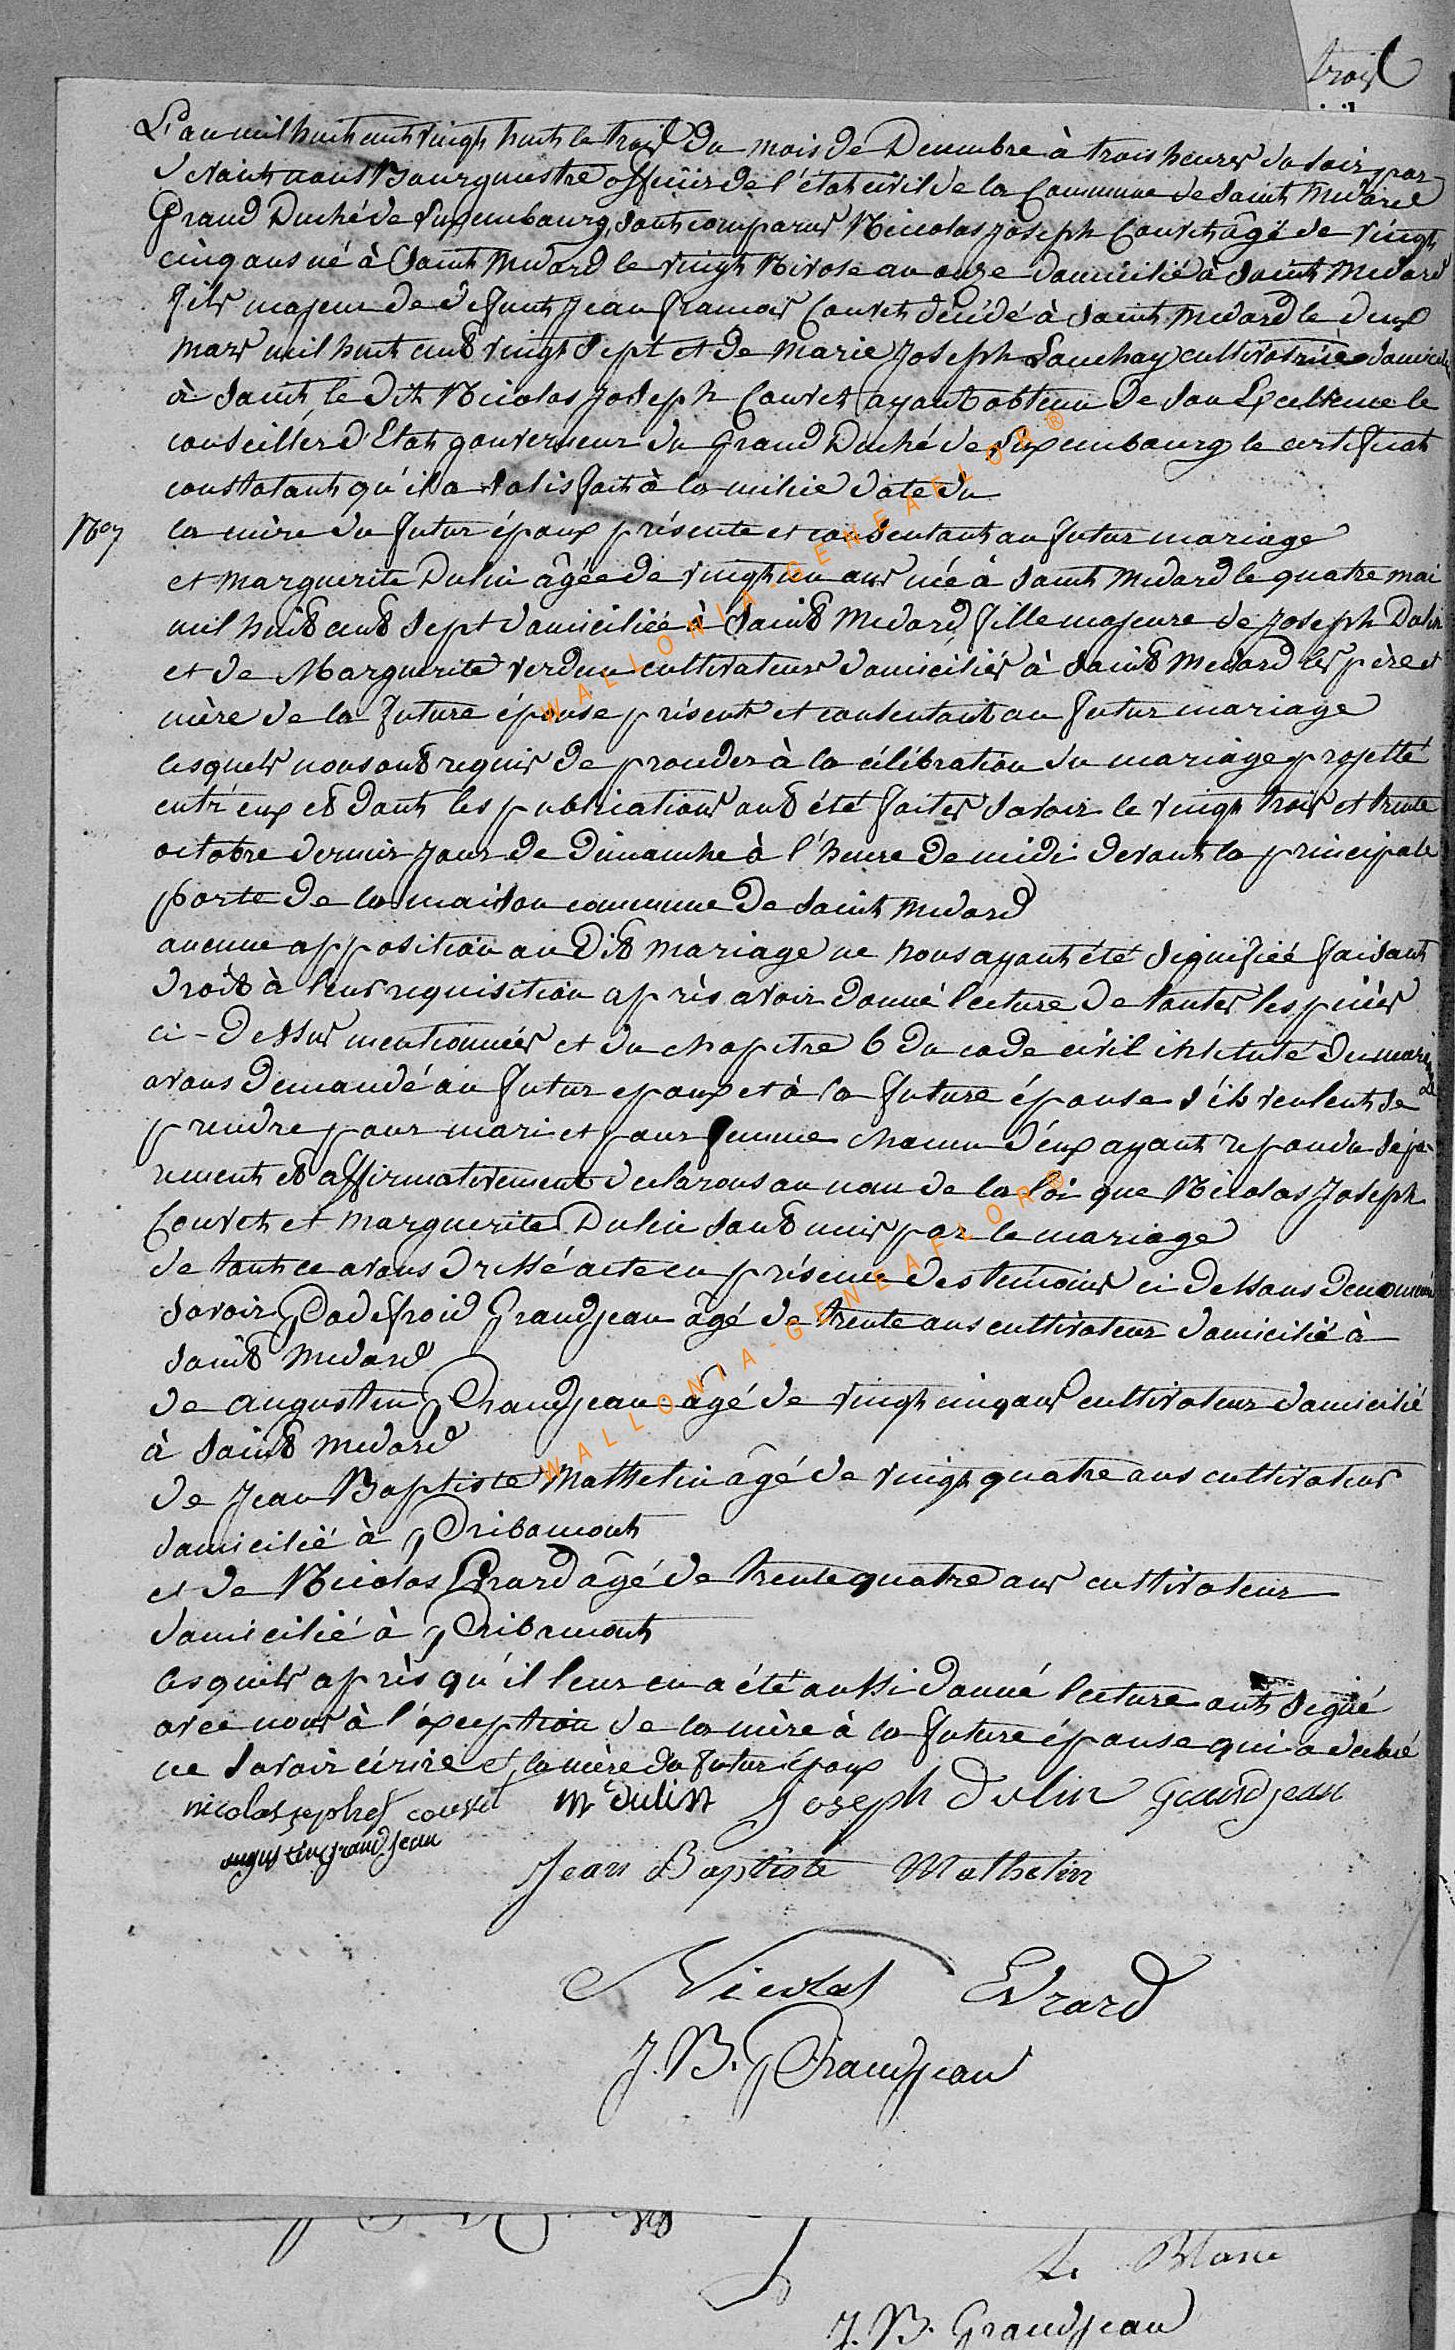 trois
L'an mil huit cent vingt huit le trois du mois de Decembre à trois heures du soir par
devant nous Bourguestre officier de l'état civil de la Commune de Saint Medard
Grand Duché de Luxembourg, sont comparus Nicolas Joseph Couvet âgé de vingt
cinq ans né à Saint Medard le vingt Nivose an onze domicilié à Saint Medard
fils majeur de defunt Jean francois Couvet décédé à Saint Medard le deux
mars mil huit cent vingt sept et de Marie Joseph Lanchay cultivatrice domiciliée
à Saint, le dit Nicolas Joseph Couvet ayant obtenu de son Excellence le
conseiller d'Etat gouverneur du Grand Duché de Luxembourg le certificat
constatant qu'il a satisfait à la milice daté du
No 7
la mère du futur époux présente et consentant au futur mariage
et Marguerite Dulin âgée de vingt un ans née à Saint Medard le quatre mai
mil huit cent sept domiciliée à Saint Medard fille majeure de Joseph Dulin
et de Marguerite Verdun cultivateurs domiciliés à Saint Medard les père et
mère de la future épouse présents et consentant au futur mariage
lesquels nous ont requis de proceder à la célébration du mariage projetté
entr'eux et dont les publications ont été faites savoir le vingt trois et trente
octobre dernier jour de dimanche à l'heure de midi devant la principale
porte de la maison commune de Saint Medard
aucune opposition au dit mariage ne nous ayant été signifiée faisant
droit à leur requisition après avoir donné lecture de toutes les pièces
ci-dessus mentionnées et du chapitre 6 du code civil intitulé du mariage
avons demandé au futur epoux et à la future épouse s'ils veulent se
prendre pour mari et pour femme chacun d'eux ayant repondu sépa-
rement et affirmativement declarons au nom de la loi que Nicolas Joseph
Couvet et Marguerite Dulin sont unis par le mariage
de tout ce avons dressé acte en présence des temoins ci dessous denommés
savoir Godefroid Grandjean âgé de trente ans cultivateur domicilié à
Saint Medard
de augustin Grandjean âgé de vingt cinq ans cultivateur domicilié
à Saint Medard
de Jean Baptiste Mathelin âgé de vingt quatre ans cultivateur
domicilié à Gribomont
et de Nicolas Evrard âgé de trente quatre ans cultivateur
domicilié à Gribomont
lesquels après qu'il leur en a été aussi donné lecture ont signé
avec nous à l'exeption de la mère à la future épouse qui a declaré
ne savoir écrire et la mère du futur époux
nicolas josephes couvet m dulin Joseph Dulin Grandjean
augustin grandjean
Jean Baptiste Mathelin
Nicolas Evrard
J. B. Grandjean
J. B. Grandjean
WALLONIA-GENEAFLOR®
WALLONIA-GENEAFLOR®